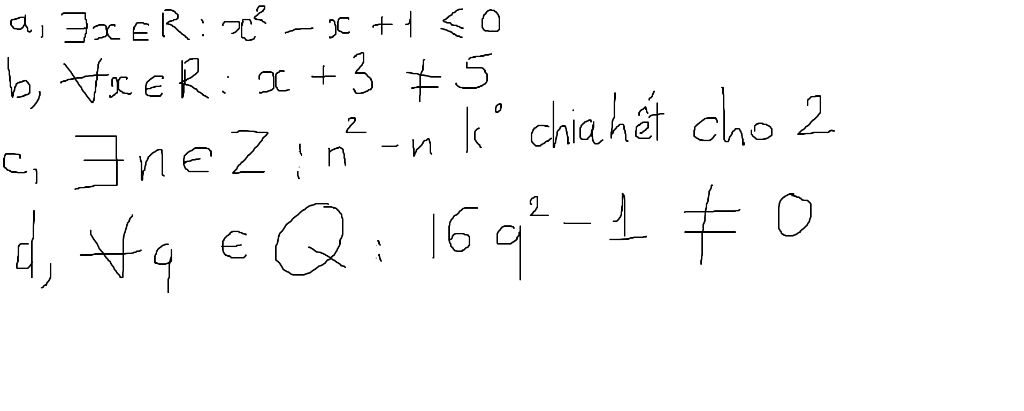 a, ∃x ∈ R : x² - x + 1 ≤ 0
b, ∀x ∈ R : x + 3 ≠ 5
c, ∃n ∈ Z : n² - n k° chia hết cho 2
d, ∀q ∈ Q : 16q² - 1 ≠ 0